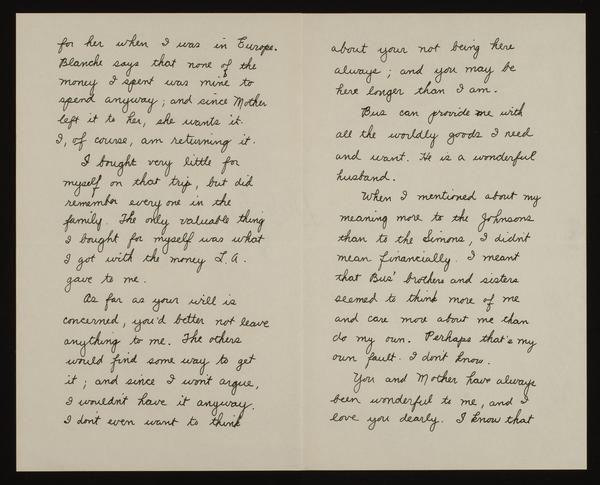 for her when I was in Europe.
Blanche says that none of the
money I spent was mine to
spend anyway; and since Mother
left it to her, she wants it.
I, of course, am returning it.
I bought very little for
myself on that trip, but did
remember every one in the
family. The only valuable thing
I bought for myself was what
I got with the money L.A.
gave to me.
As far as your will is
concerned, you'd better not leave
anything to me. The others
would find some way to get
it; and since I won't argue,
I wouldn't have it anyway.
I don't even want to think
about your not being here
always; and you may be
here longer than I am.
Bus can provide me with
all the worldly goods I need
and want. He is a wonderful
husband.
When I mentioned about my
meaning more to the Johnsons
than to the Simons, I didn't
mean financially. I meant
that Bus' brothers and sisters
seemed to think more of me
and care more about me than
do my own. Perhaps that's my
own fault. I don't know.
You and Mother have always
been wonderful to me, and I
love you dearly. I know that